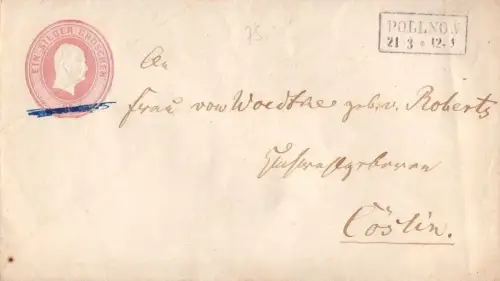 75.
POLLNOW
21 3 * 12-1
EIN SILBER GROSCHEN
An
Frau von Woedtke geb. v. Roberts
Hochwohlgeboren
Cöslin.